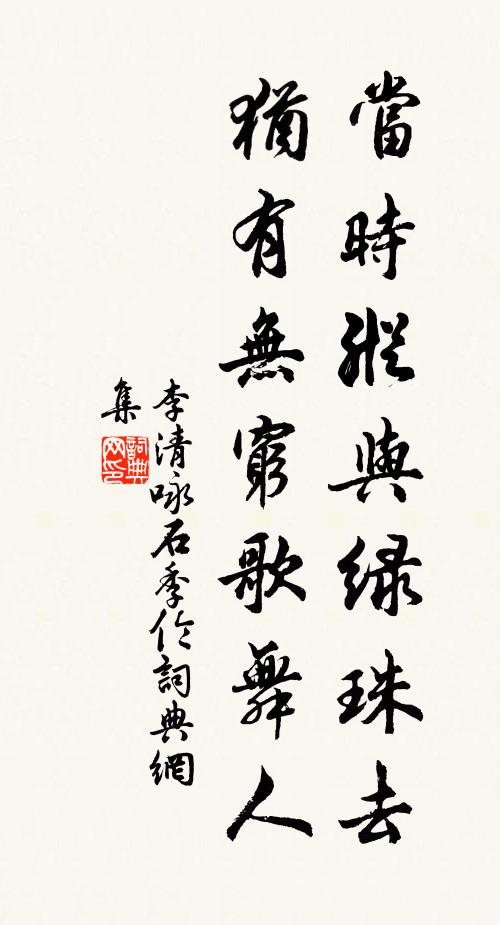 當時縱與緑珠去
猶有無窮歌舞人
李清咏石季伦詞典網
集
詞典
网印